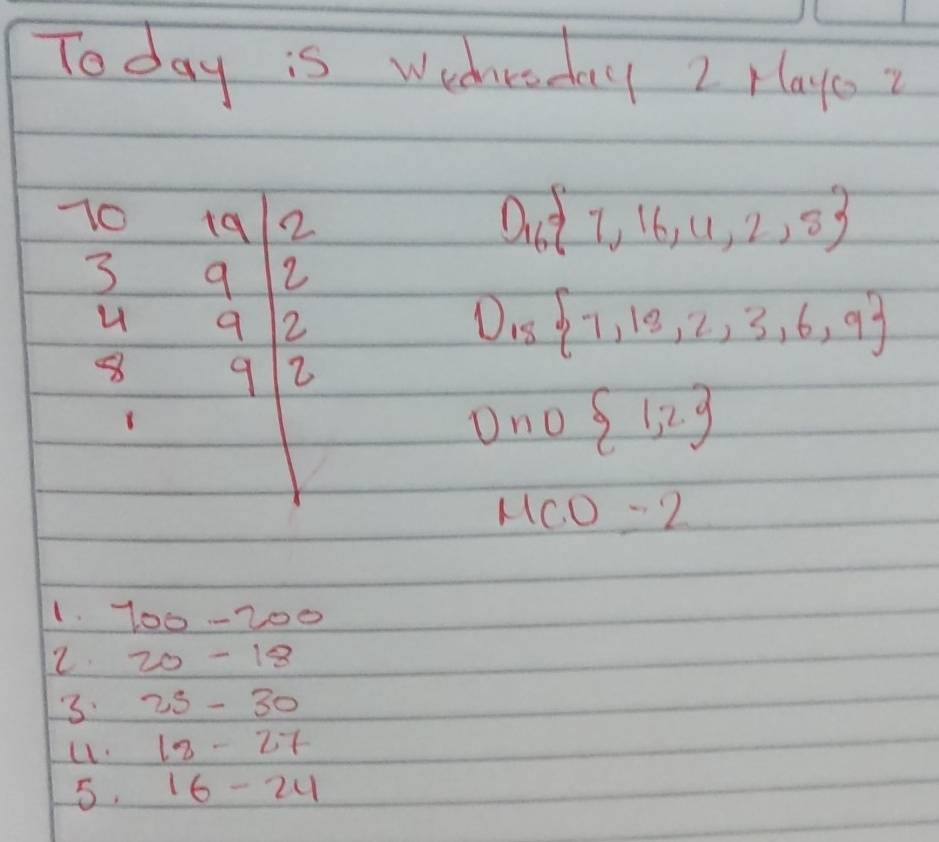 Today is Wednesday 2 Mayo 2
10 19 2
3 9 2
4 9 2
8 9 2
1
D16{ 1, 16, 4, 2, 8}
D18 { 1, 18, 2, 3, 6, 9}
DnD { 1,2}
MCD - 2
1. 100 - 200
2. 20 - 18
3. 25 - 30
4. 18 - 27
5. 16 - 24